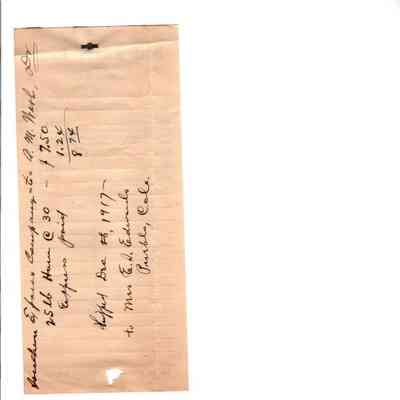 Southern Express Company to A. M. Nesb. Dr
25 lb Ham @ 30 - $7.50
Express paid 1.24
8 74
Shipped Dec 28, 1917 -
to Mrs E. D. Edwards
Pueblo, Colo.